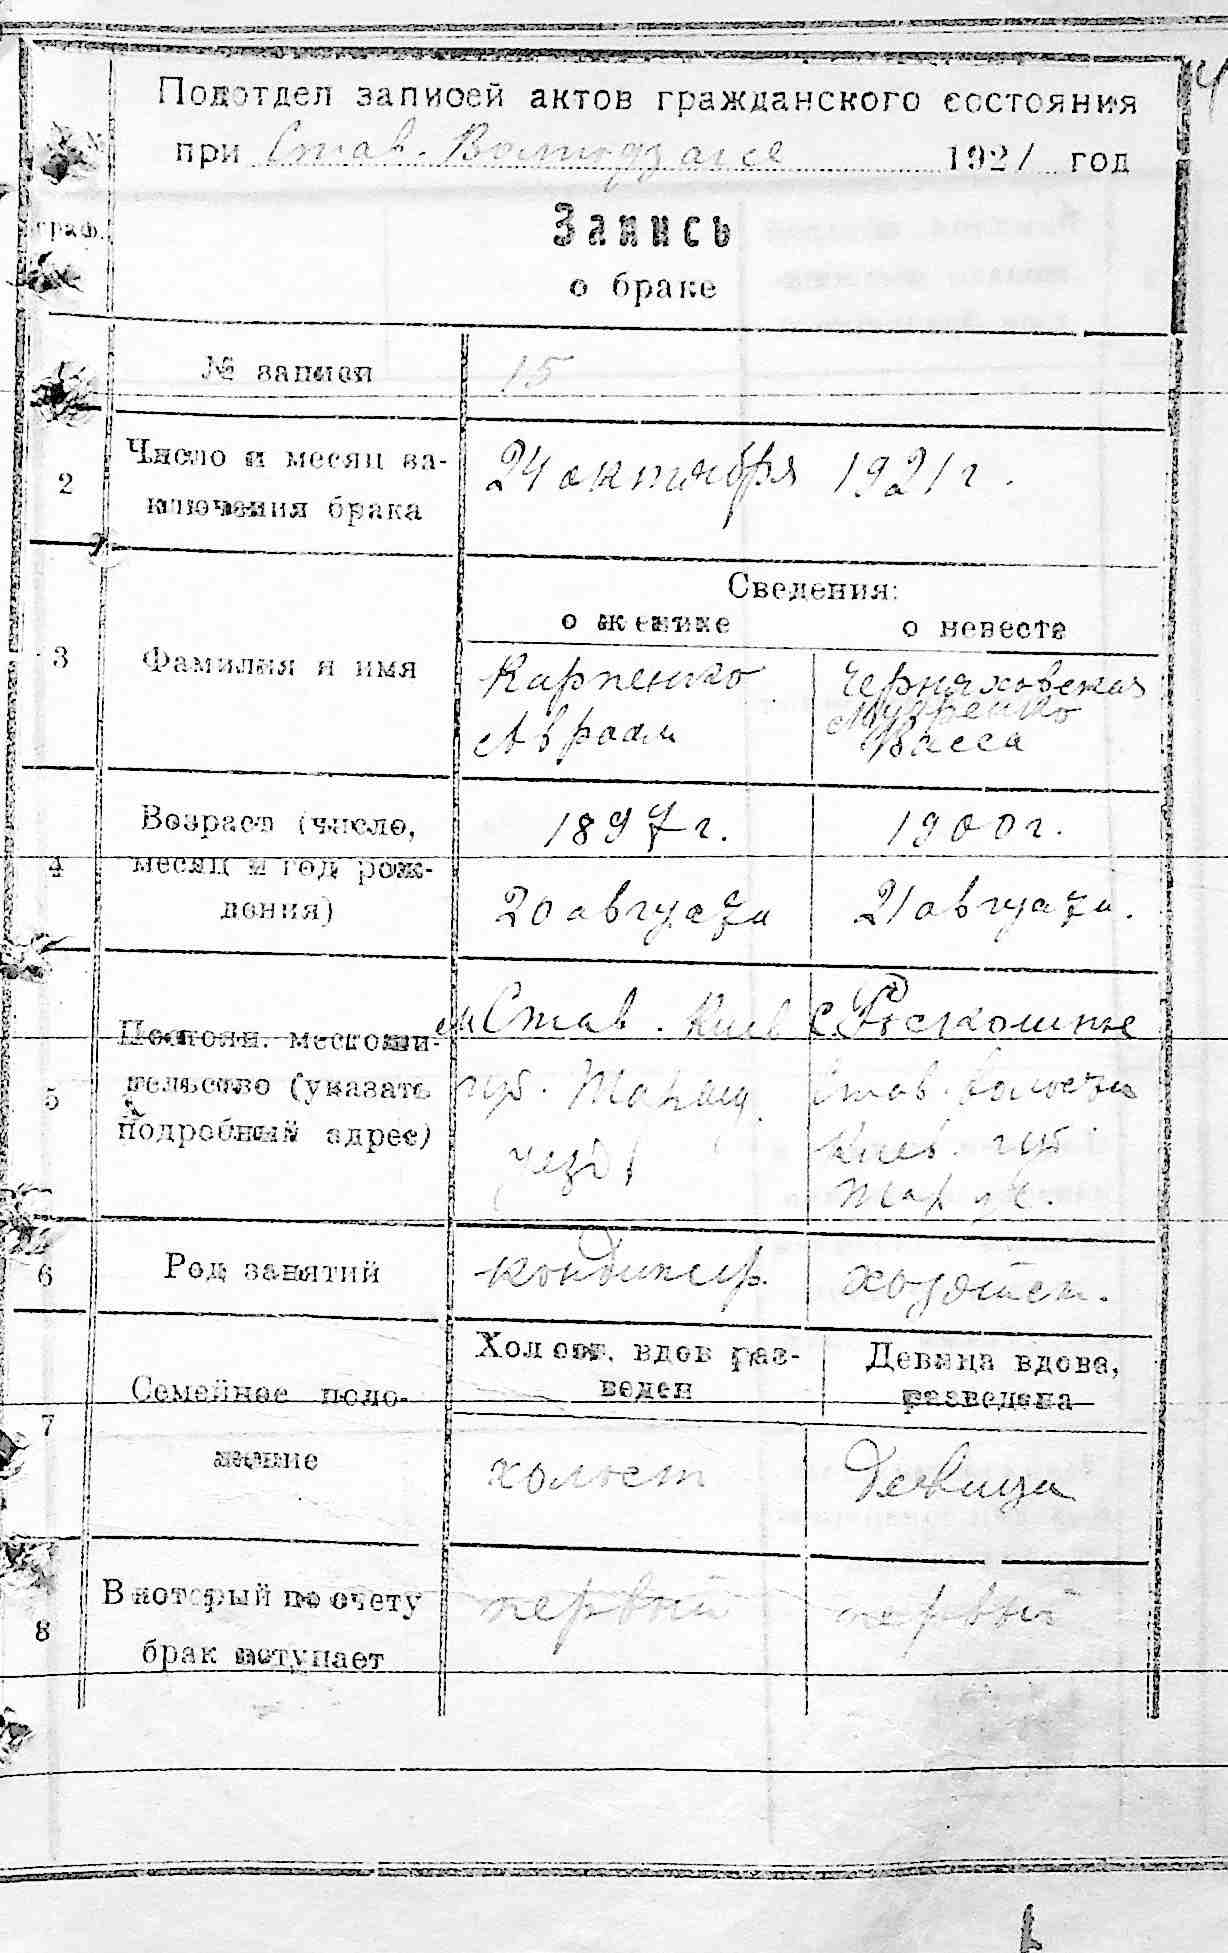 Подотдел записей актов гражданского состояния
при Став. 1921 год
граф.
Запись
о браке
№ записи 15
2 Число и месяц за-
ключения брака
24 октября 1921 г.
Сведения:
о женихе о невесте
3 Фамилия и имя
Карпенко
Авраам
Черняховская
Васса
4 Возраст (число,
месяц и год рож-
дения)
1897 г.
20 августа
1900 г.
21 августа.
5 Постоян. местожи-
тельство (указать
подробный адрес)
м Став. Киев
губ. Таращ.
уезд
с. Роскошне
Став. волости
Киев. губ.
Тар. у.
6 Род занятий
Холост. вдов раз-
веден
Девица вдова,
разведена
7 Семейное поло-
жение
холост
Девица
8 В который по счету
брак вступает
первый
первый